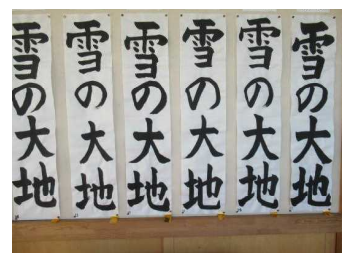 雪の大地
雪の大地
雪の大地
雪の大地
雪の大地
雪の大地